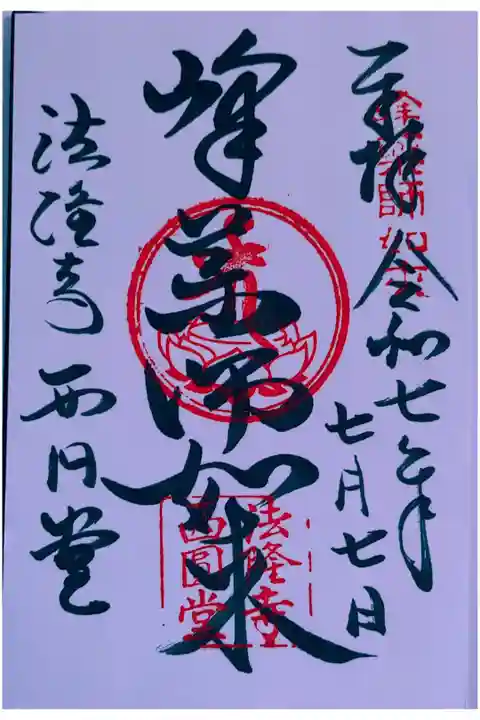 奉拝 令和七年
七月七日
峰薬師如来
法隆寺 西円堂
峰薬師如来
法隆寺
西圓堂